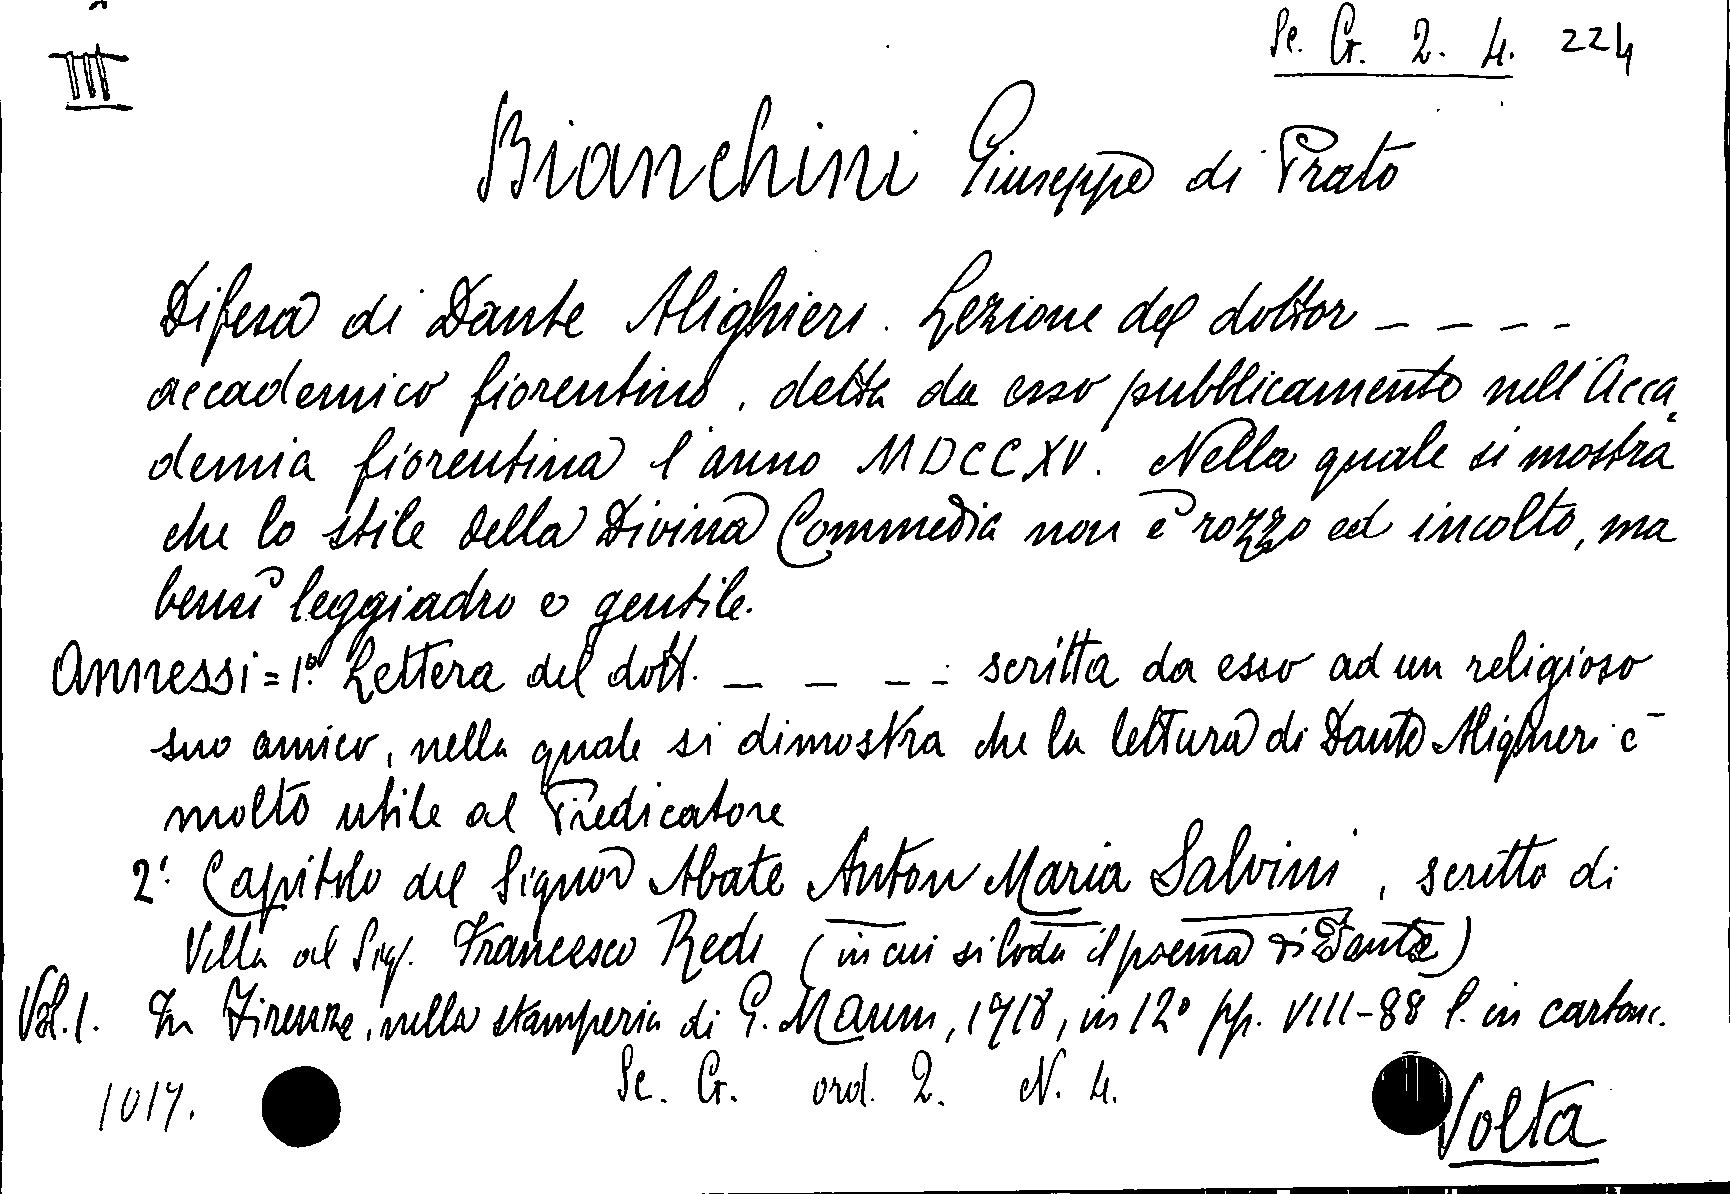 III
Sc. Cr. 2. 4. 224
Bianchini Giuseppe di Prato
Difesa di Dante Alighieri. Lezione del dottor _ _ _ _
accademico fiorentino, detta da esso pubblicamente nell'Acca
demia fiorentina l'anno MDCCXV. Nella quale si mostra
che lo stile della Divina Commedia non è rozzo ed incolto, ma
bensì leggiadro e gentile.
Annessi = 1º. Lettera del dott. _ _ _ _ scritta da esso ad un religioso
suo amico, nella quale si dimostra che la lettura di Dante Alighieri è
molto utile al Predicatore
2º. Capitolo del Signor Abate Anton Maria Salvini, scritto di
Villa al Sig. Francesco Redi (in cui si loda il poema di Dante)
Vol. 1. In Firenze, nella stamperia di G. Manni, 1718, in 12º pp. VIII-88 l. in cartonc.
1017. Sc. Cr. ord. 2. N. 4.
Volta